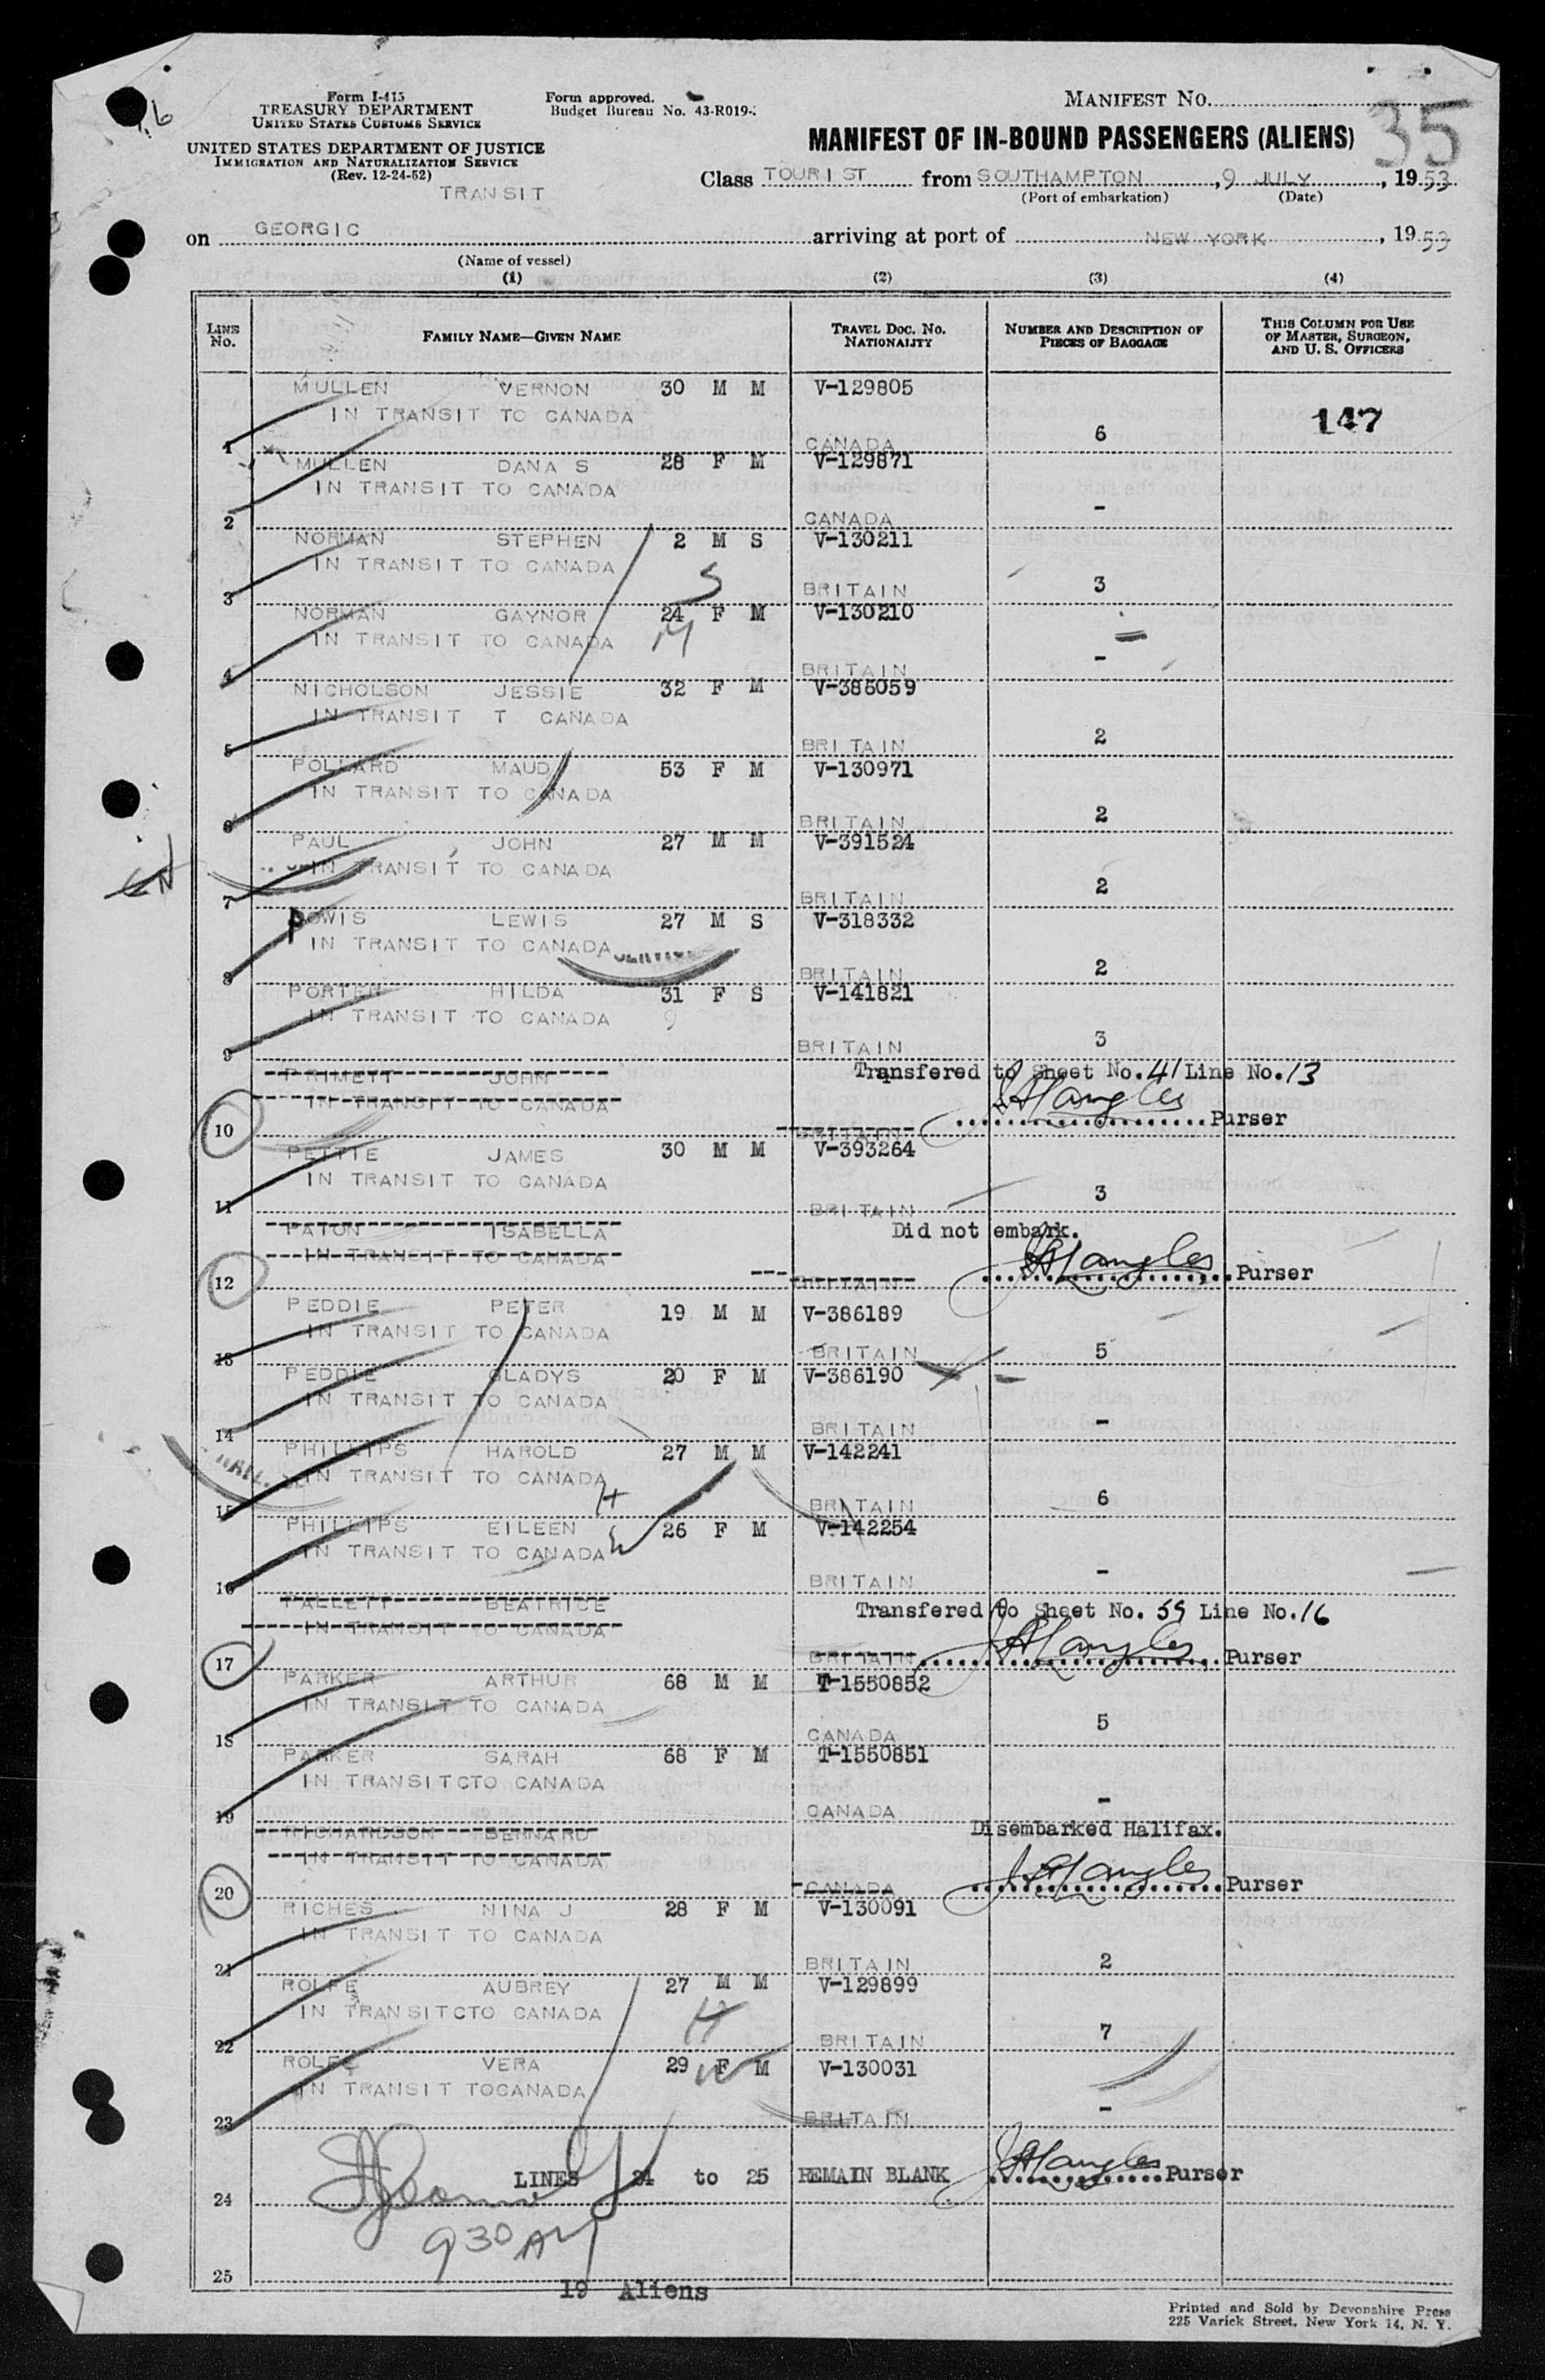 Form I-415
TREASURY DEPARTMENT
UNITED STATES CUSTOMS SERVICE
UNITED STATES DEPARTMENT OF JUSTICE
IMMIGRATION AND NATURALIZATION SERVICE
(Rev. 12-24-52)
TRANSIT
Form approved.
Budget Bureau No. 43-R019-
MANIFEST NO.
35
MANIFEST OF IN-BOUND PASSENGERS (ALIENS)
Class TOURIST from SOUTHAMPTON, 9 JULY, 1953
(Port of embarkation) (Date)
on GEORGIC arriving at port of NEW YORK, 1953
(Name of vessel)
(1) (2) (3) (4)
LINE NO. FAMILY NAME—GIVEN NAME TRAVEL DOC. NO. NATIONALITY NUMBER AND DESCRIPTION OF PIECES OF BAGGAGE THIS COLUMN FOR USE OF MASTER, SURGEON, AND U. S. OFFICERS
MULLEN VERNON 30 M M V-129805
IN TRANSIT TO CANADA 147
1 CANADA 6
MULLEN DANA S 28 F M V-129871
IN TRANSIT TO CANADA
2 CANADA -
NORMAN STEPHEN 2 M S V-130211
IN TRANSIT TO CANADA S
3 BRITAIN 3
NORMAN GAYNOR 24 F M V-130210
IN TRANSIT TO CANADA M
4 BRITAIN -
NICHOLSON JESSIE 32 F M V-386059
IN TRANSIT T CANADA
5 BRITAIN 2
POLLARD MAUD 53 F M V-130971
IN TRANSIT TO CANADA
6 BRITAIN 2
PAUL JOHN 27 M M V-391524
IN TRANSIT TO CANADA
7 BRITAIN 2
POWIS LEWIS 27 M S V-318332
IN TRANSIT TO CANADA
8 BRITAIN 2
PORTER HILDA 31 F S V-141821
IN TRANSIT TO CANADA 9
9 BRITAIN 3
PRIMETT JOHN Transfered to Sheet No. 41 Line No. 13
IN TRANSIT TO CANADA
10 BRITAIN Purser
PETTIE JAMES 30 M M V-393264
IN TRANSIT TO CANADA
11 BRITAIN 3
PATON ISABELLA Did not embark.
IN TRANSIT TO CANADA
12 BRITAIN Purser
PEDDIE PETER 19 M M V-386189
IN TRANSIT TO CANADA
13 BRITAIN 5
PEDDIE GLADYS 20 F M V-386190
IN TRANSIT TO CANADA
14 BRITAIN -
PHILLIPS HAROLD 27 M M V-142241
IN TRANSIT TO CANADA H
15 BRITAIN 6
PHILLIPS EILEEN 26 F M V-142254
IN TRANSIT TO CANADA W
16 BRITAIN -
PALLETT BEATRICE Transfered to Sheet No. 59 Line No. 16
IN TRANSIT TO CANADA
17 BRITAIN Purser
PARKER ARTHUR 68 M M T-1550852
IN TRANSIT TO CANADA
18 CANADA 5
PARKER SARAH 68 F M T-1550851
IN TRANSITCTO CANADA
19 CANADA -
RICHARDSON BERNARD Disembarked Halifax.
IN TRANSIT TO CANADA
20 CANADA Purser
RICHES NINA J 28 F M V-130091
IN TRANSIT TO CANADA
21 BRITAIN 2
ROLFE AUBREY 27 M M V-129899
IN TRANSITCTO CANADA H
22 BRITAIN 7
ROLFE VERA 29 F M V-130031
IN TRANSIT TOCANADA W
23 BRITAIN -
LINES 24 to 25 REMAIN BLANK Purser
24
930 AM
25
19 Aliens
Printed and Sold by Devonshire Press
225 Varick Street, New York 14, N. Y.